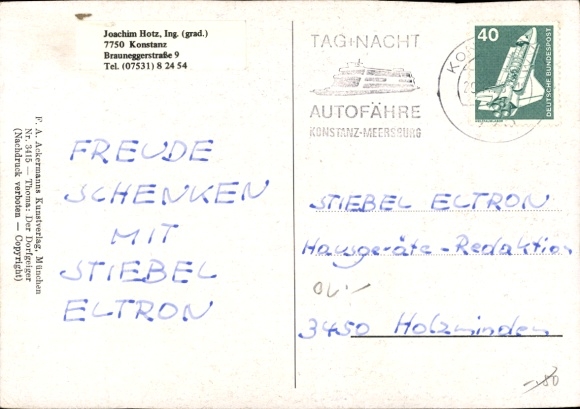 Joachim Hotz, Ing. (grad.)
7750 Konstanz
Brauneggerstraße 9
Tel. (07531) 8 24 54
TAG+NACHT
AUTOFÄHRE
KONSTANZ-MEERSBURG
KON
40
DEUTSCHE BUNDESPOST
F. A. Ackermanns Kunstverlag, München
Nr. 3415 — Thoma, Der Dorfgeiger
(Nachdruck verboten — Copyright)
FREUDE
SCHENKEN
MIT
STIEBEL
ELTRON
STIEBEL ELTRON
Hausgeräte-Redaktion
3450 Holzminden